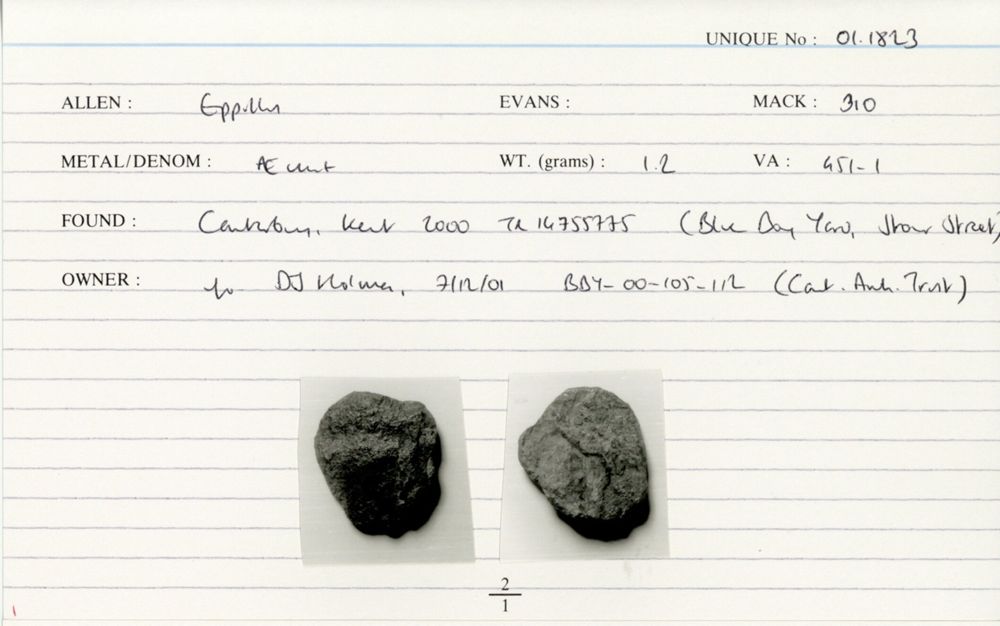 UNIQUE No : 01.1823
ALLEN : Eppillus EVANS : MACK : 310
METAL/DENOM : Æ unit WT. (grams) : 1.2 VA : 451-1
FOUND : Canterbury, Kent 2000 TR 14755775 (Blue Boy Yard, Stour Street)
OWNER : DJ Holman, 7/12/01 BBY-00-105-112 (Cant. Arch. Trust)
2
1